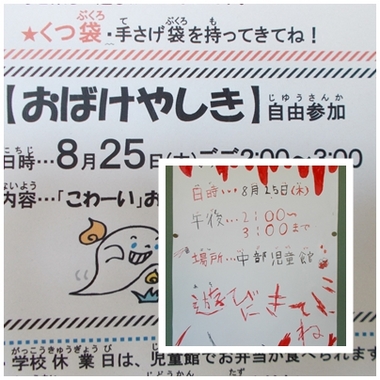 ★くつ袋・手さげ袋を持ってきてね!
【おばけやしき】自由参加
日時…8月25日(木)ごご2:00〜3:00
内容…「こわーい」お
日時…8月25日(木)
午後…2:00〜
3:00まで
場所…中部児童館
遊びにきてね
学校休業日は、児童館でお弁当が食べられます